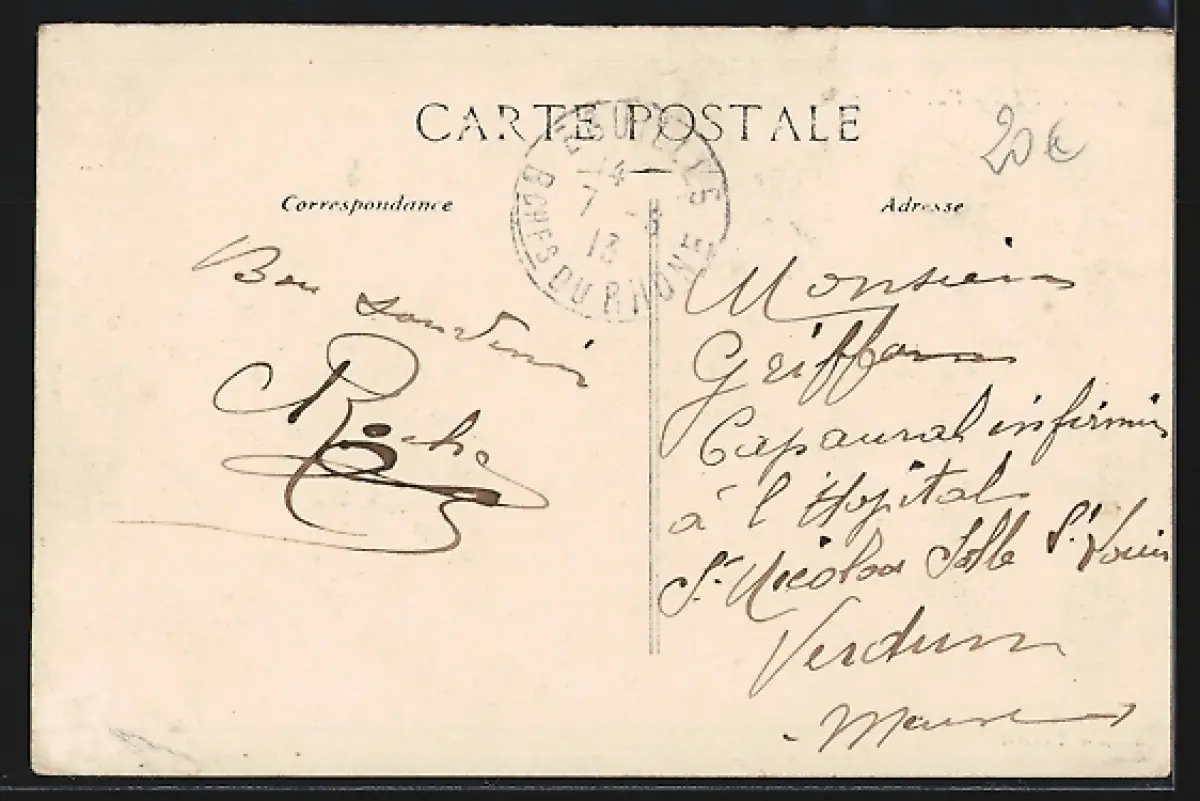 CARTE POSTALE
20€
14
7 - 3
13
BCHES DU RHONE
Correspondance
Adresse
Bon Souvenir
Roche
Monsieur
Griffon
Capaural infirmier
à l'Hopital
St Nicolas Salle St Louis
Verdun
Meuse